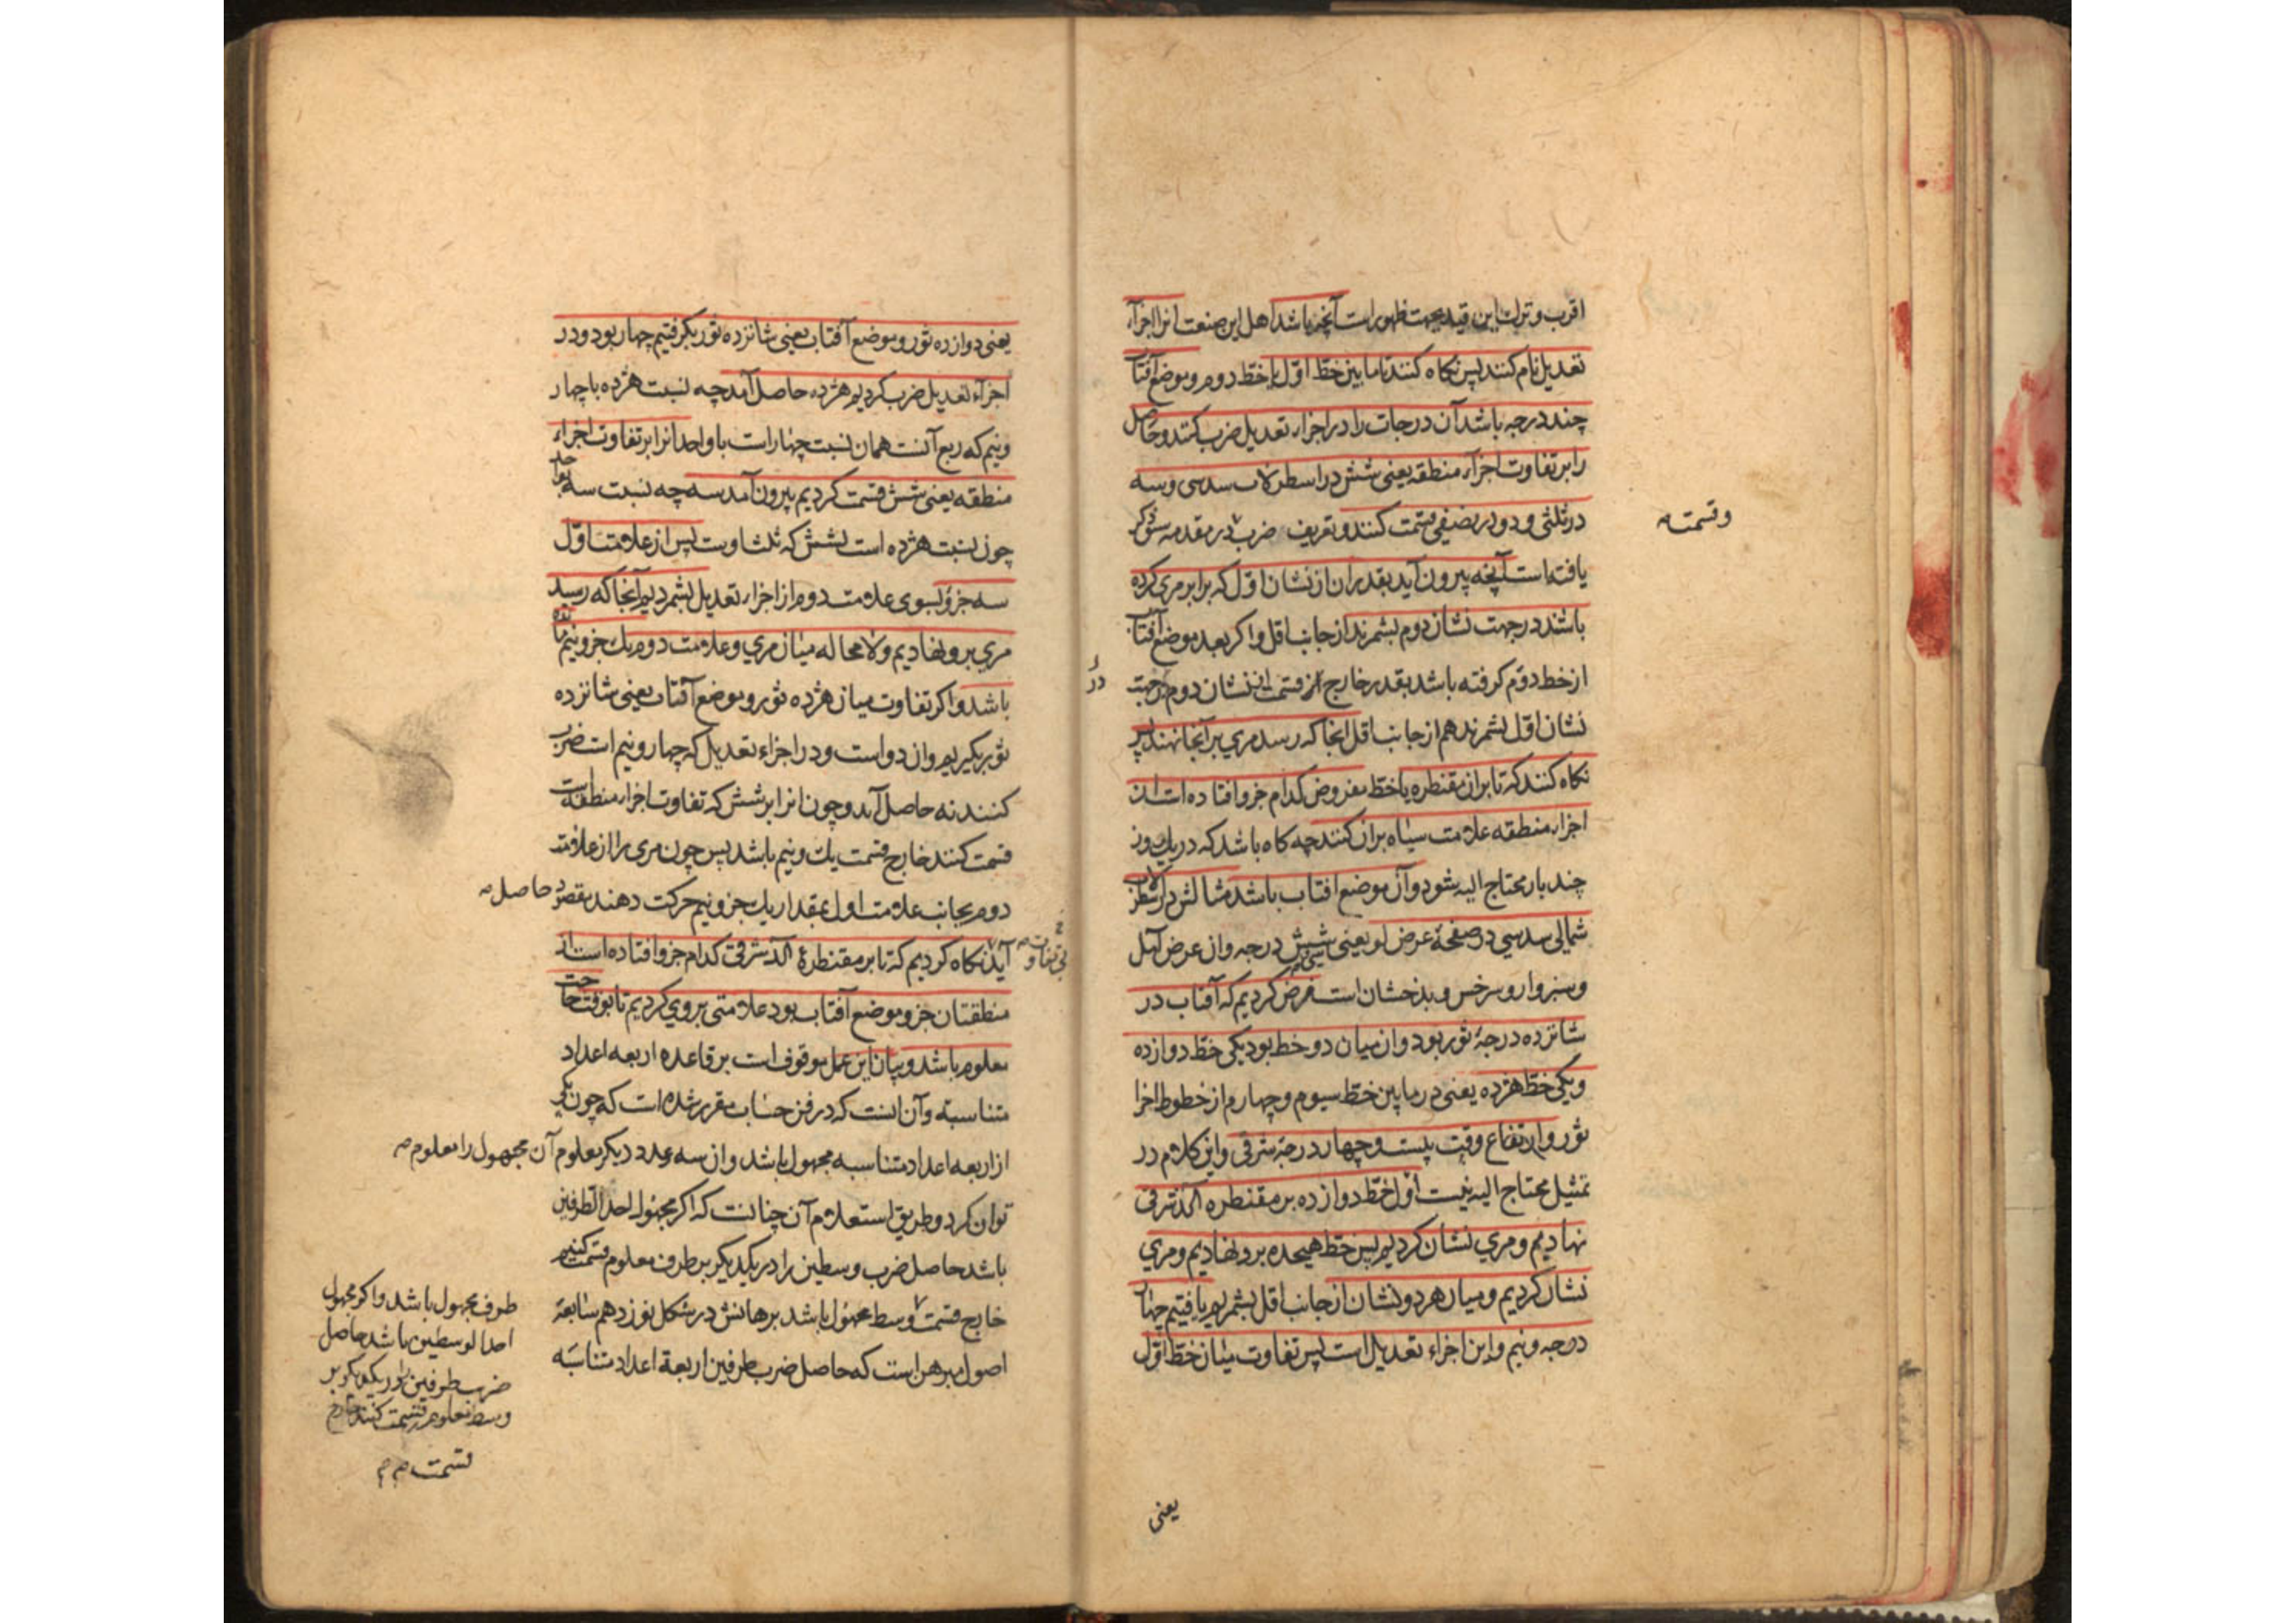 اقرب و ترك این قید بجهت ظهور است آنچه باشد اهل این صنعت انرا اجزآء
تعدیل نام کنند پس نکاه کنند تا ما بین خطّ اوّل یا خطّ دوم و موضع آفتاب
چند درجه باشد آن درجات را در اجزاء تعدیل ضرب کنند و حاصل
را بر تفاوت اجزآء منطقه یعنی شش در اسطرلاب سدسی و سه
در ثلثی و دو در نصفی قسمت کنند و تعریف ضرب در مقدمه سبق ذکر
و قسمت
یافته است آنچه بیرون آید بقدر ان از نشان اوّل که برابر مری کرده
باشند در جهت نشان دوم بشمرند از جانب اقل و اکر بعد موضع آفتاب
از خط دوّم کرفته باشد بقدر خارج از قسمت از نشان دوم در جهت
نشان اوّل بشمرند هم از جانب اقل انجا که رسد مری بر آنجا نهند پس
نکاه کنند که تا بر ان مقنطره یا خطّ مفروض کدام جزو افتاده است از
اجزاء منطقه علامت سیاه بران کنند چه کاه باشد که در یك روز
چند بار محتاج الیه شود و آن موضع افتاب باشد مثالش در اسطرلاب
شمالی سدسی در صفحهٔ عرض لو یعنی سی و شش درجه و ان عرض آمل
و سبزوار و سرخس و بدخشان است فرض کردیم که آفتاب در
شانزده درجهٔ ثور بود و ان میان دو خط بود یکی خطّ دوازده
و یکی خطّ هژده یعنی در ما بین خطّ سیوم و چهارم از خطوط اجزا
ثور و ارتفاع وقت بیست و چهار درجهٔ شرقی و این کلام در
تمثیل محتاج الیه نیست اوّل خطّ دوازده بر مقنطره الکد شرقی
نهادیم و مری نشان کردیم پس خطّ هیجده برو نهادیم و مری
نشان کردیم و میان هر دو نشان از جانب اقل بشمردیم یافتیم چهار
درجه و نیم و این اجزاء تعدیل است پس تفاوت میان خطّ اوّل
یعنی
یعنی دوازده ثور و موضع آفتاب یعنی شانزده ثور بکرفتیم چهار بود و در
اجزآء تعدیل ضرب کردیم هژده حاصل آمد چه نسبت هژده با چهار
و نیم که ربع آنست همان نسبت چهار است با واحد انرا بر تفاوت اجزاء
منطقه یعنی شش قسمت کردیم بیرون آمد سه چه نسبت سه بواحد
چون نسبت هژده است بشش که ثلث اوست پس از علامت اوّل
سه جزؤ بسوی علامت دوم از اجزاء تعدیل بشمردیم آنجا که رسید
مری برو نهادیم و لا محاله میان مری و علامت دوم یك جزو و نیم مانده
باشد و اکر تفاوت میان هژده ثور و موضع آفتاب یعنی شانزده
ثور بکیریم و ان دو است و در اجزاء تعدیل که چهار و نیم است ضرب
کنند نه حاصل آید و چون انرا بر شش که تفاوت اجزاء منطقه است
قسمت کنند خارج قسمت یك و نیم باشد پس چون مری را از علامت
دوم بجانب علامت اول بمقدار یك جزو و نیم حرکت دهند مقصود حاصل
بی تفاوت
آید نکاه کردیم که تا بر مقنطرهٔ الکد شرقی کدام جزو افتاده است از
منطقه ان جزو موضع آفتاب بود علامتی بروی کردیم تا بوقت حاجت
معلوم باشد و بیان این عمل موقوف است بر قاعده اربعه اعداد
متناسبة و آن انست که در فن حساب مقرر شده است که چون یکی
از اربعه اعداد متناسبه مجهول باشد و ان سه عدد دیکر معلوم آن مجهول را معلوم
توان کرد و طریق استعلام آن چنانست که اکر مجهول احد الطرفین
باشد حاصل ضرب وسطین را در یکدیکر بر طرف معلوم قسمت کنیم
خارج قسمت وسط مجهول باشد برهانش در شکل نوزدهم سابعهٔ
اصول مبرهن است که حاصل ضرب طرفین اربعة اعداد متناسبه
طرف مجهول باشد و اکر مجهول
احد الوسطین باشد حاصل
ضرب طرفین را در یکدیکر بر
وسط معلوم قسمت کنند خارج
قسمت